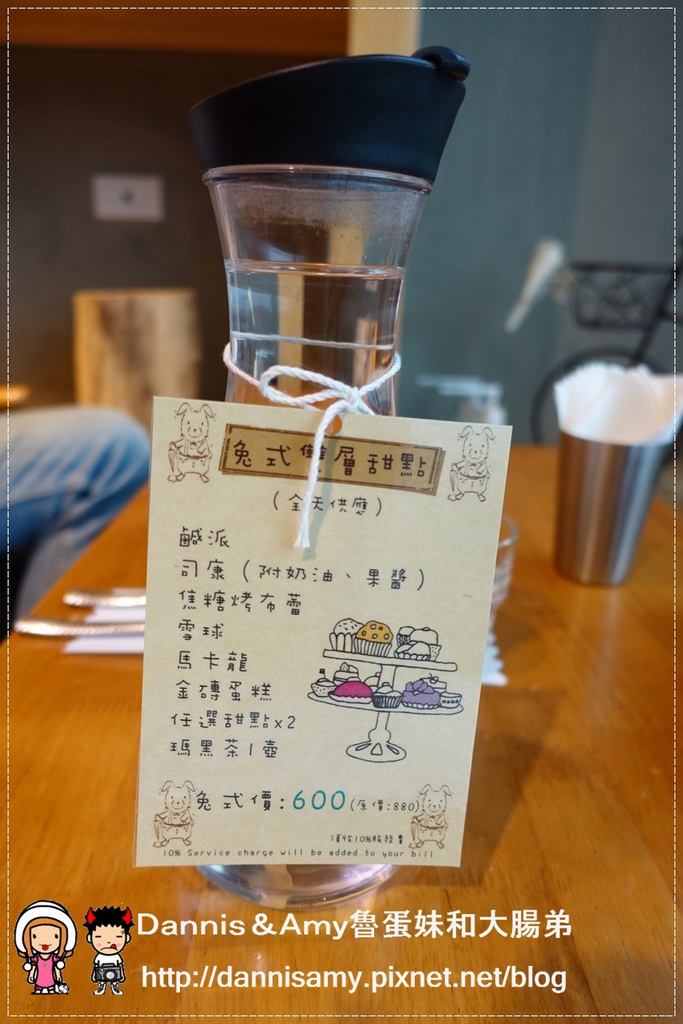 兔式雙層甜點
(全天供應)
鹹派
司康(附奶油、果醬)
焦糖烤布蕾
雪球
馬卡龍
金磚蛋糕
任選甜點x2
瑪黑茶1壺
兔式價:600(原價:880)
須收10%服務費
10% Service charge will be added to your bill
Dannis&Amy魯蛋妹和大腸弟
http://dannisamy.pixnet.net/blog